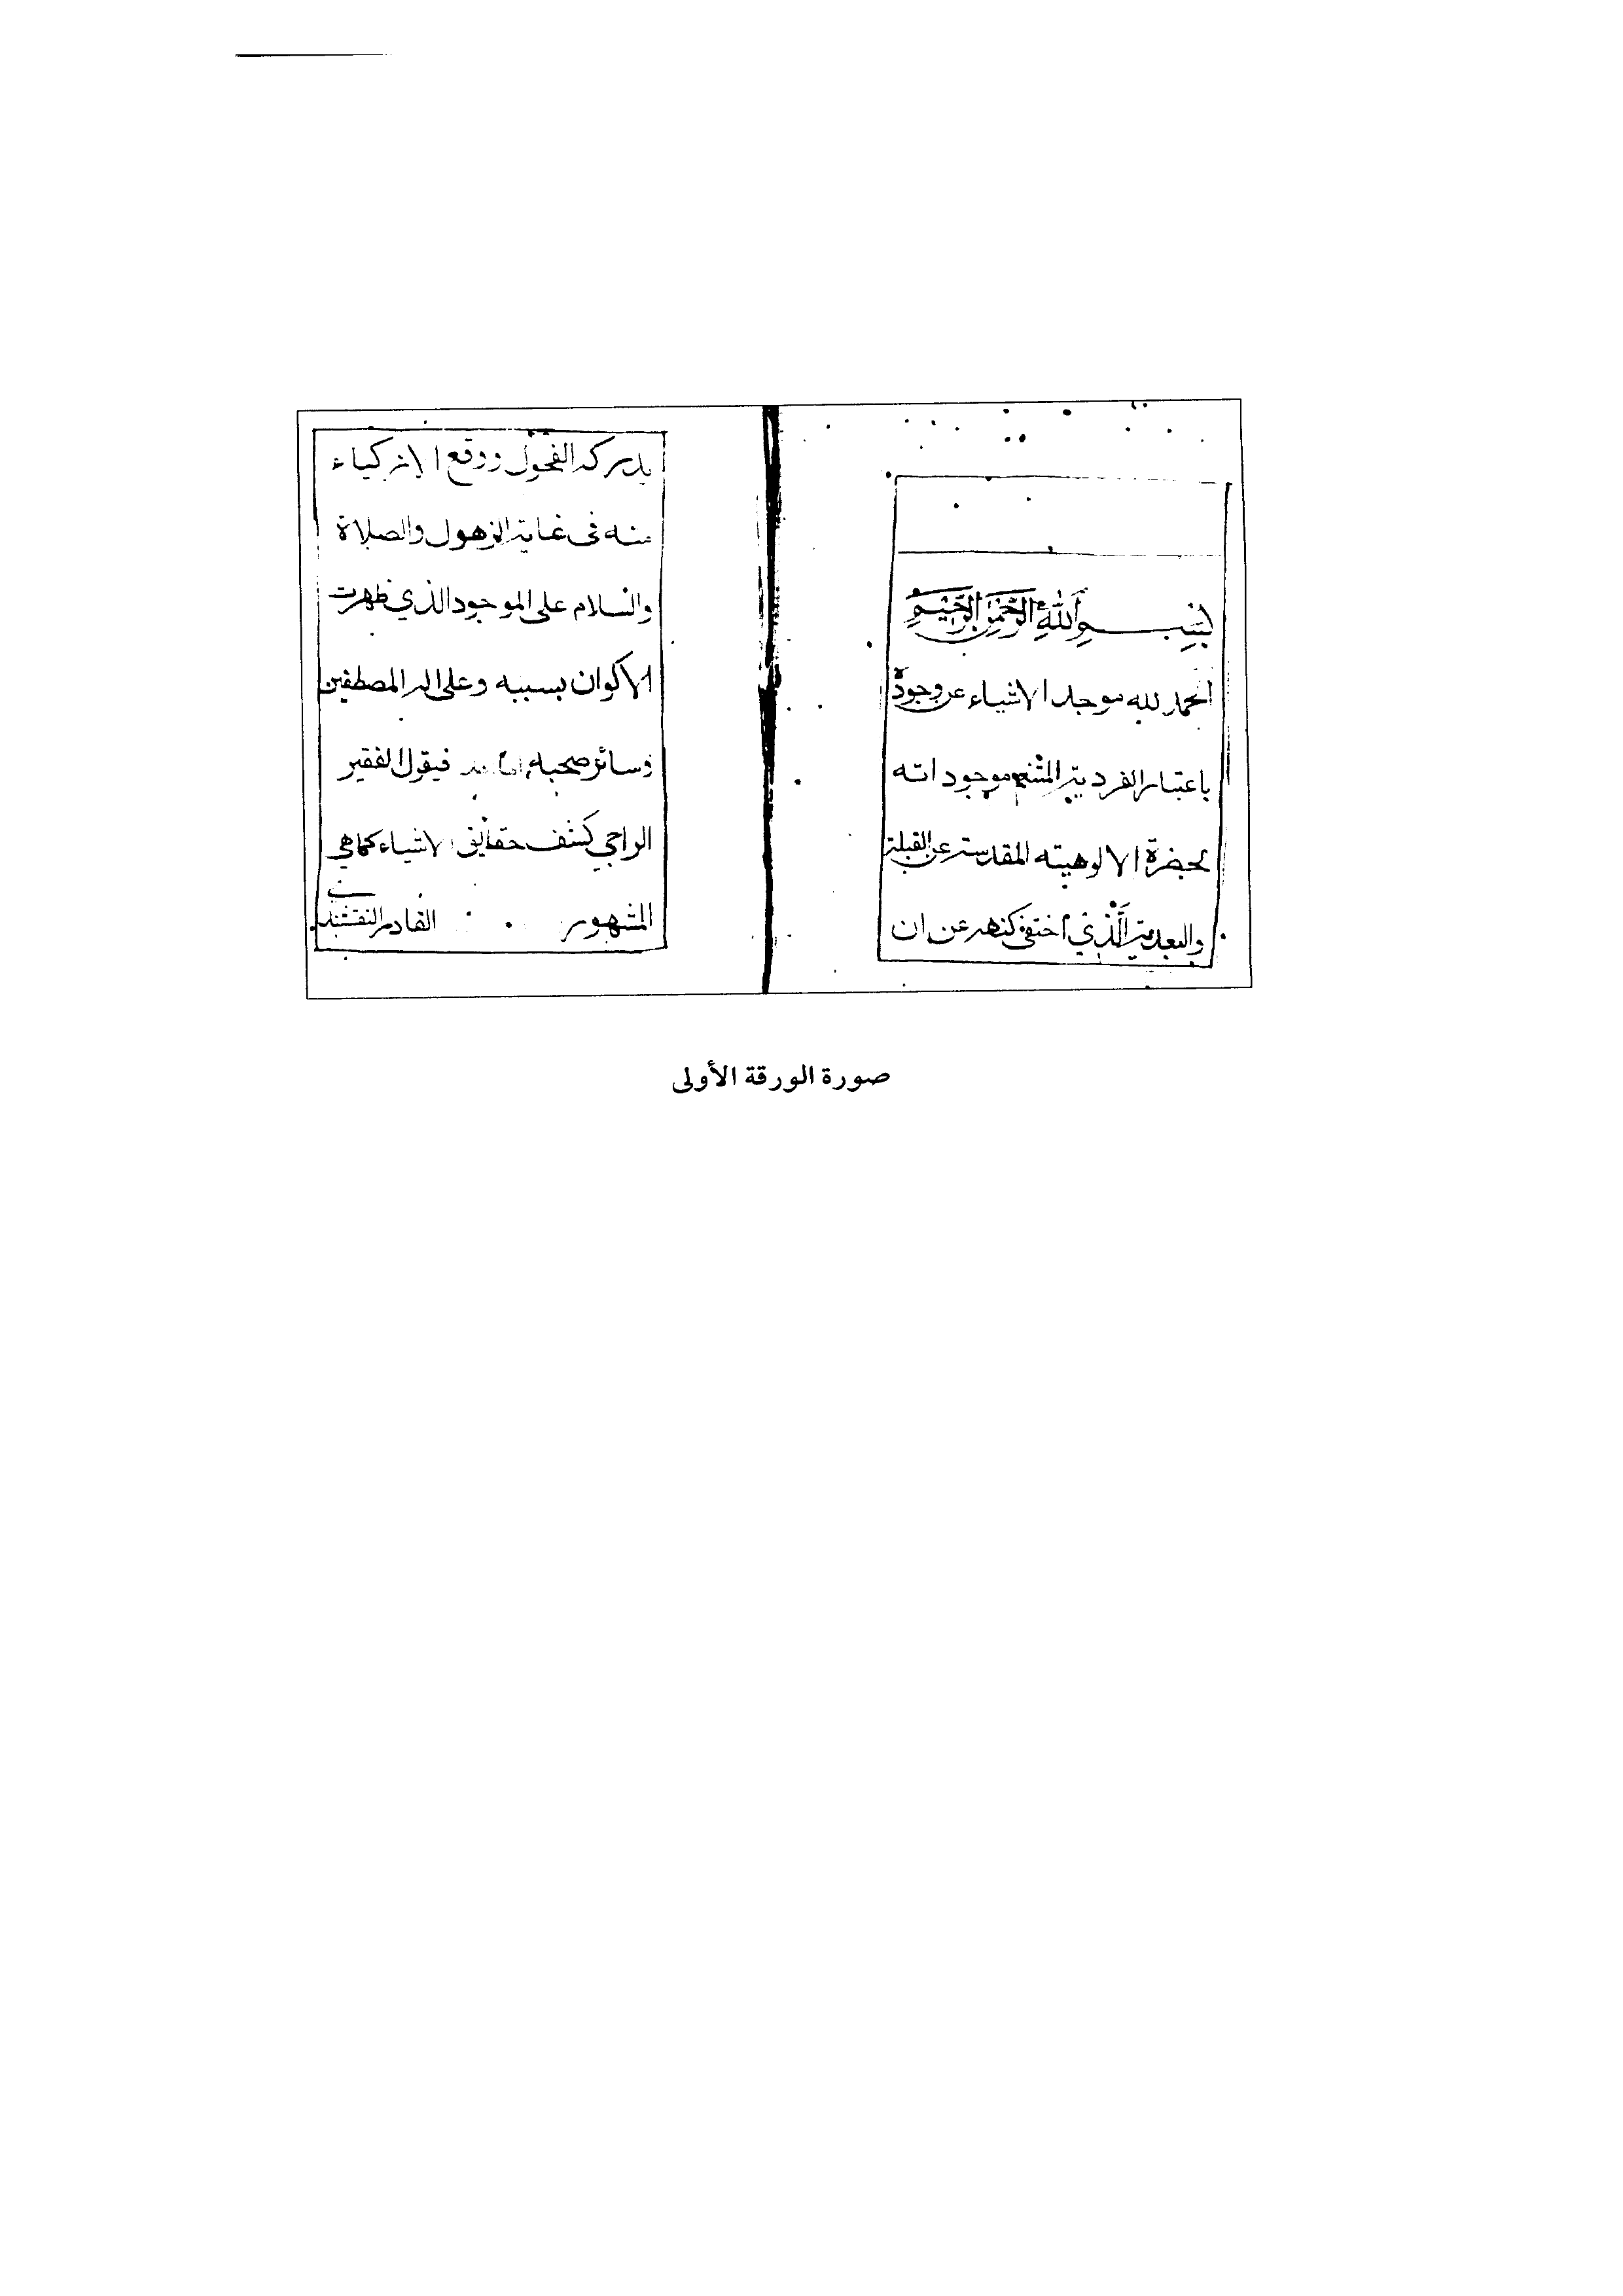 بسم الله الرحمن الرحيم
الحمد لله موجد الاشياء عن وجوده
باعتبار الفردية موجوداته
بحضرة الالوهيته المقدسة عن القبلية
والبعدية الذي اختفى كنهه عن ان
يدركه الفحول ووقع الازكياء
منه في غاية الزهول والصلاة
والسلام على الموجود الذي ظهرت
الاكوان بسببه وعلى اله المصطفين
وسائر صحبه فيقول الفقير
الراجي كشف حقايق الاشياء كما هي
المشهور القادر النقشبندي
صورة الورقة الأولى